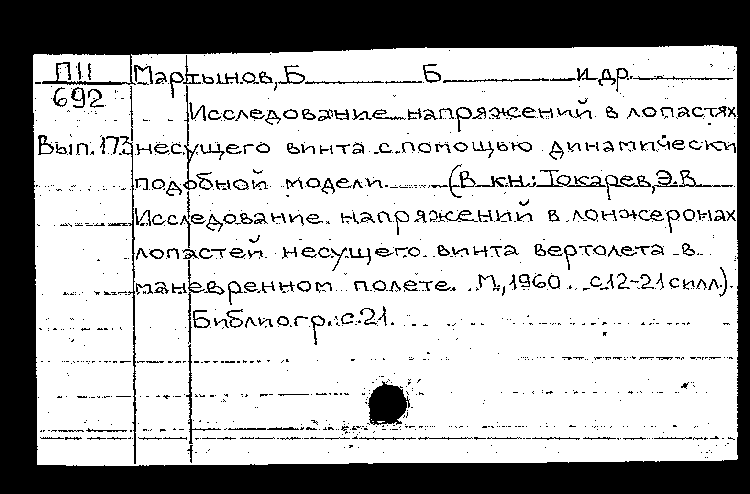 П11 Мартынов, Б Б и др.
692
Исследование напряжений в лопастях
Вып. 173 несущего винта с помощью динамически
подобной модели (В кн.: Токарев, Э.В
Исследование напряжений в лонжеронах
лопастей несущего винта вертолета в
маневренном полете. М., 1960. с.12-21 с илл).
Библиогр.: с.21.